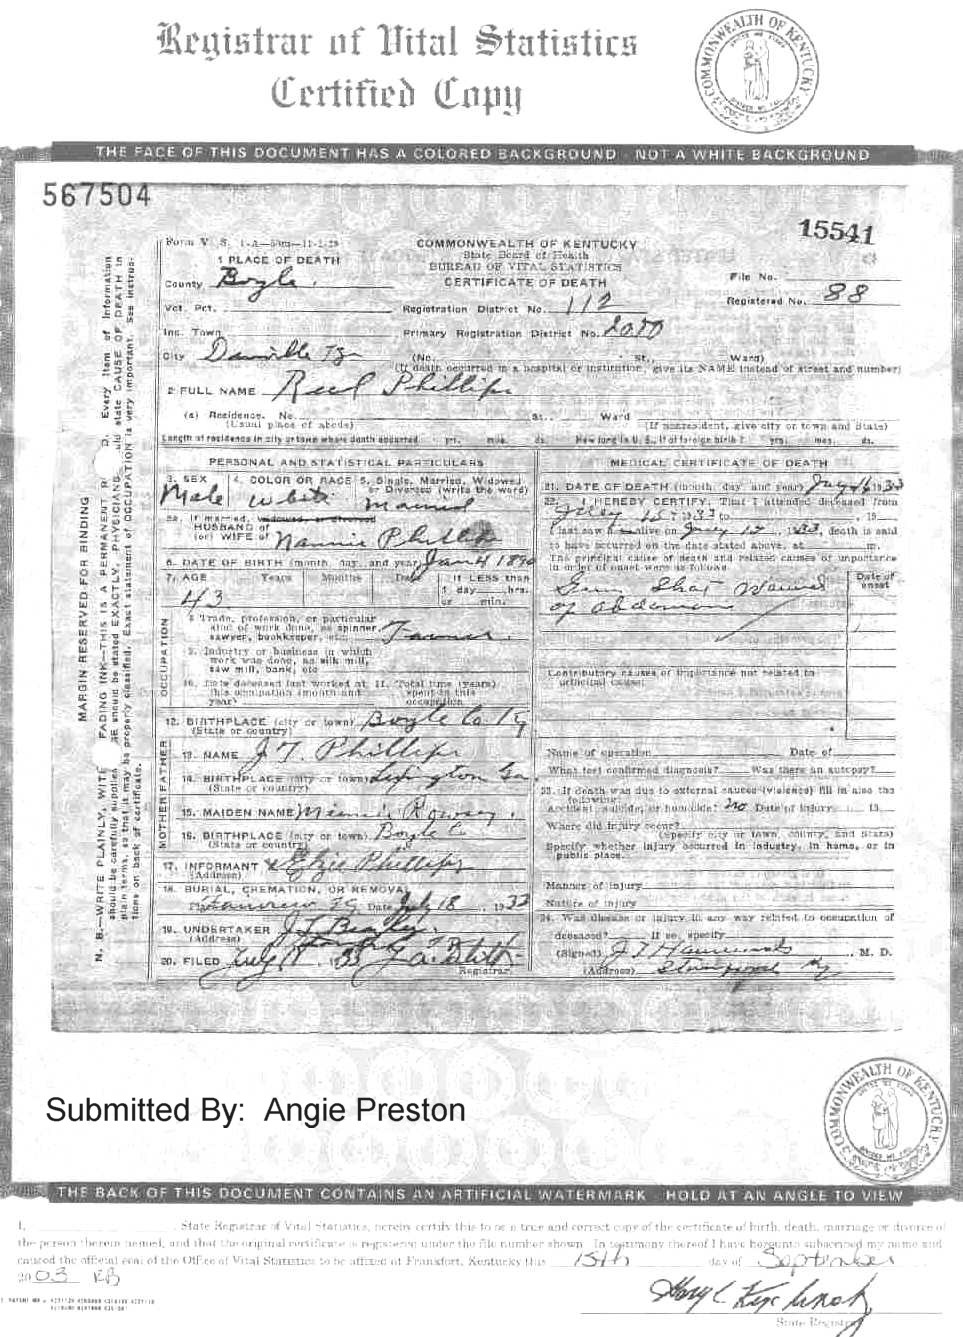 Registrar of Vital Statistics
Certified Copy
COMMONWEALTH OF KENTUCKY
THE FACE OF THIS DOCUMENT HAS A COLORED BACKGROUND · NOT A WHITE BACKGROUND
567504
15541
Form V. S. 1-A
COMMONWEALTH OF KENTUCKY
State Board of Health
BUREAU OF VITAL STATISTICS
CERTIFICATE OF DEATH
1 PLACE OF DEATH
County Boyle.
File No.
Registered No. 88
Vot. Pct.
Registration District No. 112
Inc. Town
Primary Registration District No.
City Danville Ky
(No. St., Ward)
(If death occurred in a hospital or institution, give its NAME instead of street and number)
2 FULL NAME Phillips
(a) Residence. No. St. Ward
(Usual place of abode) (If nonresident, give city or town and State)
Length of residence in city or town where death occurred yrs. mos. ds. How long in U. S., if of foreign birth? yrs. mos. ds.
MARGIN RESERVED FOR BINDING
PERSONAL AND STATISTICAL PARTICULARS
3. SEX 4. COLOR OR RACE 5. Single, Married, Widowed or Divorced (write the word)
Male white Married
5a. If married, widowed, or divorced
HUSBAND of
(or) WIFE of Nannie Phillips
6. DATE OF BIRTH (month, day, and year) Jan 4 1890
7. AGE Years Months Days If LESS than
1 day hrs.
or min.
43
OCCUPATION
8. Trade, profession, or particular
kind of work done, as spinner,
sawyer, bookkeeper, etc. Farmer.
9. Industry or business in which
work was done, as silk mill,
saw mill, bank, etc
10. Date deceased last worked at 11. Total time (years)
this occupation (month and spent in this
year) occupation
12. BIRTHPLACE (city or town) Boyle Co. Ky
(State or country)
FATHER
13. NAME J T Phillips
14. BIRTHPLACE (city or town)
(State or country)
MOTHER
15. MAIDEN NAME
16. BIRTHPLACE (city or town) Boyle Co
(State or country)
17. INFORMANT Elzie Phillips
(Address)
18. BURIAL, CREMATION, OR REMOVAL
Place Date July 18, 1933
19. UNDERTAKER
(Address)
20. FILED
Registrar.
MEDICAL CERTIFICATE OF DEATH
21. DATE OF DEATH (month, day and year) July 16 1933
22. I HEREBY CERTIFY, That I attended deceased from
July 15 1933 to , 19
I last saw h alive on July 15, 1933, death is said
to have occurred on the date stated above, at m.
The principal cause of death and related causes of importance
in order of onset were as follows:
Date of onset
Gun Shot Wound
of abdomen
Contributory causes of importance not related to
principal cause:
Name of operation Date of
What test confirmed diagnosis? Was there an autopsy?
23. If death was due to external causes (violence) fill in also the
following:
Accident, suicide, or homicide? no Date of injury 19
Where did injury occur?
(Specify city or town, county, and State)
Specify whether injury occurred in industry, in home, or in
public place.
Manner of injury
Nature of injury
24. Was disease or injury in any way related to occupation of
deceased? If so, specify
(Signed) , M. D.
(Address) Ky
Submitted By: Angie Preston
COMMONWEALTH OF KENTUCKY
THE BACK OF THIS DOCUMENT CONTAINS AN ARTIFICIAL WATERMARK · HOLD AT AN ANGLE TO VIEW
I, , State Registrar of Vital Statistics, hereby certify this to be a true and correct copy of the certificate of birth, death, marriage or divorce of
the person therein named, and that the original certificate is registered under the file number shown. In testimony thereof I have hereunto subscribed my name and
caused the official seal of the Office of Vital Statistics to be affixed at Frankfort, Kentucky this 15th day of September
2003 RB
State Registrar